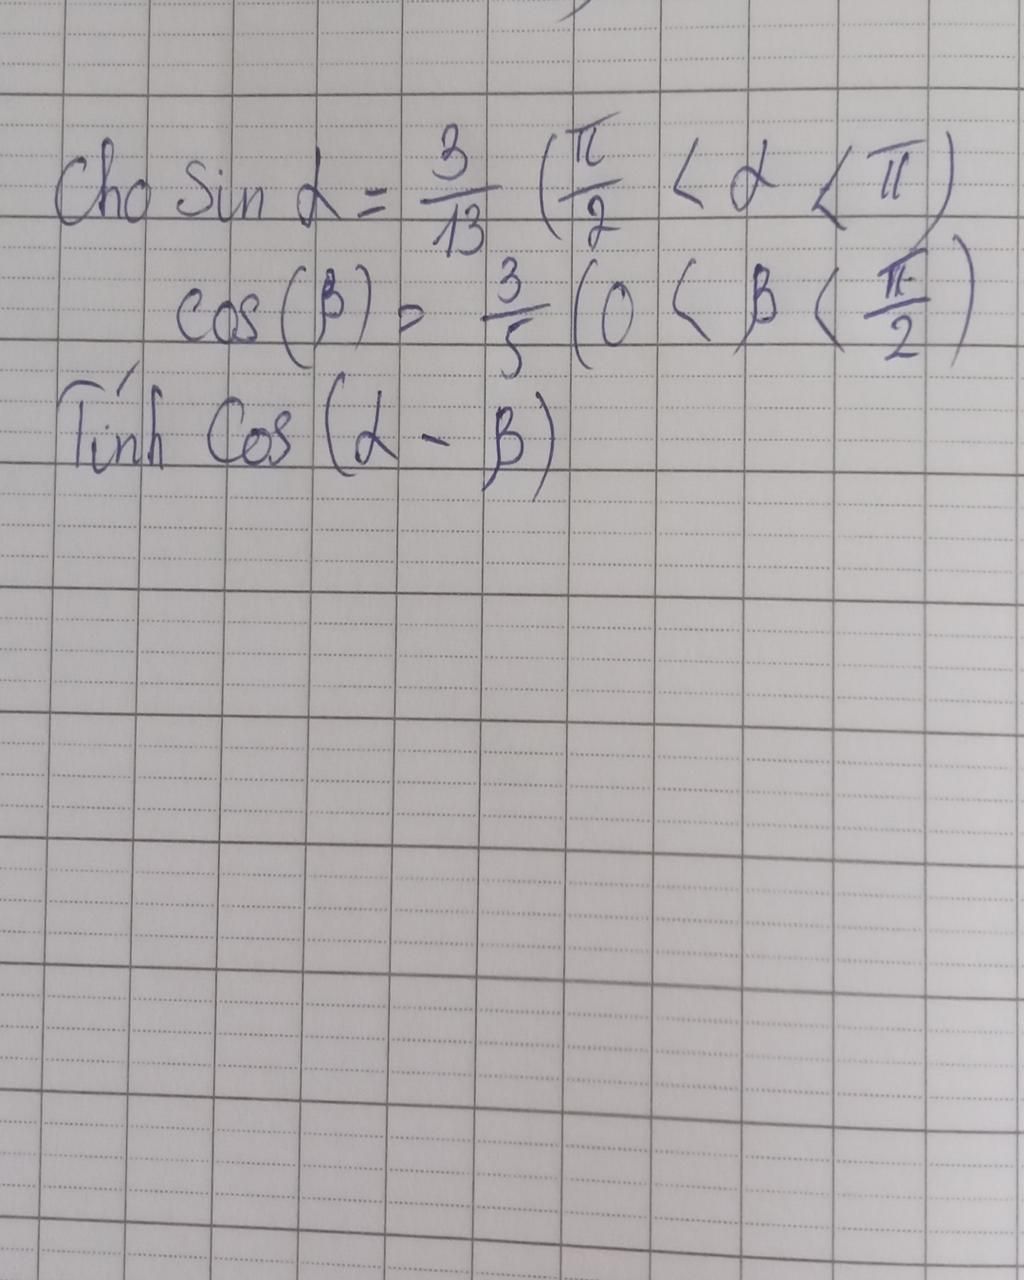 Cho Sin α = 3/13 (π/2 < α < π)
cos(β) = 3/5 (0 < β < π/2)
Tính Cos (α - β)